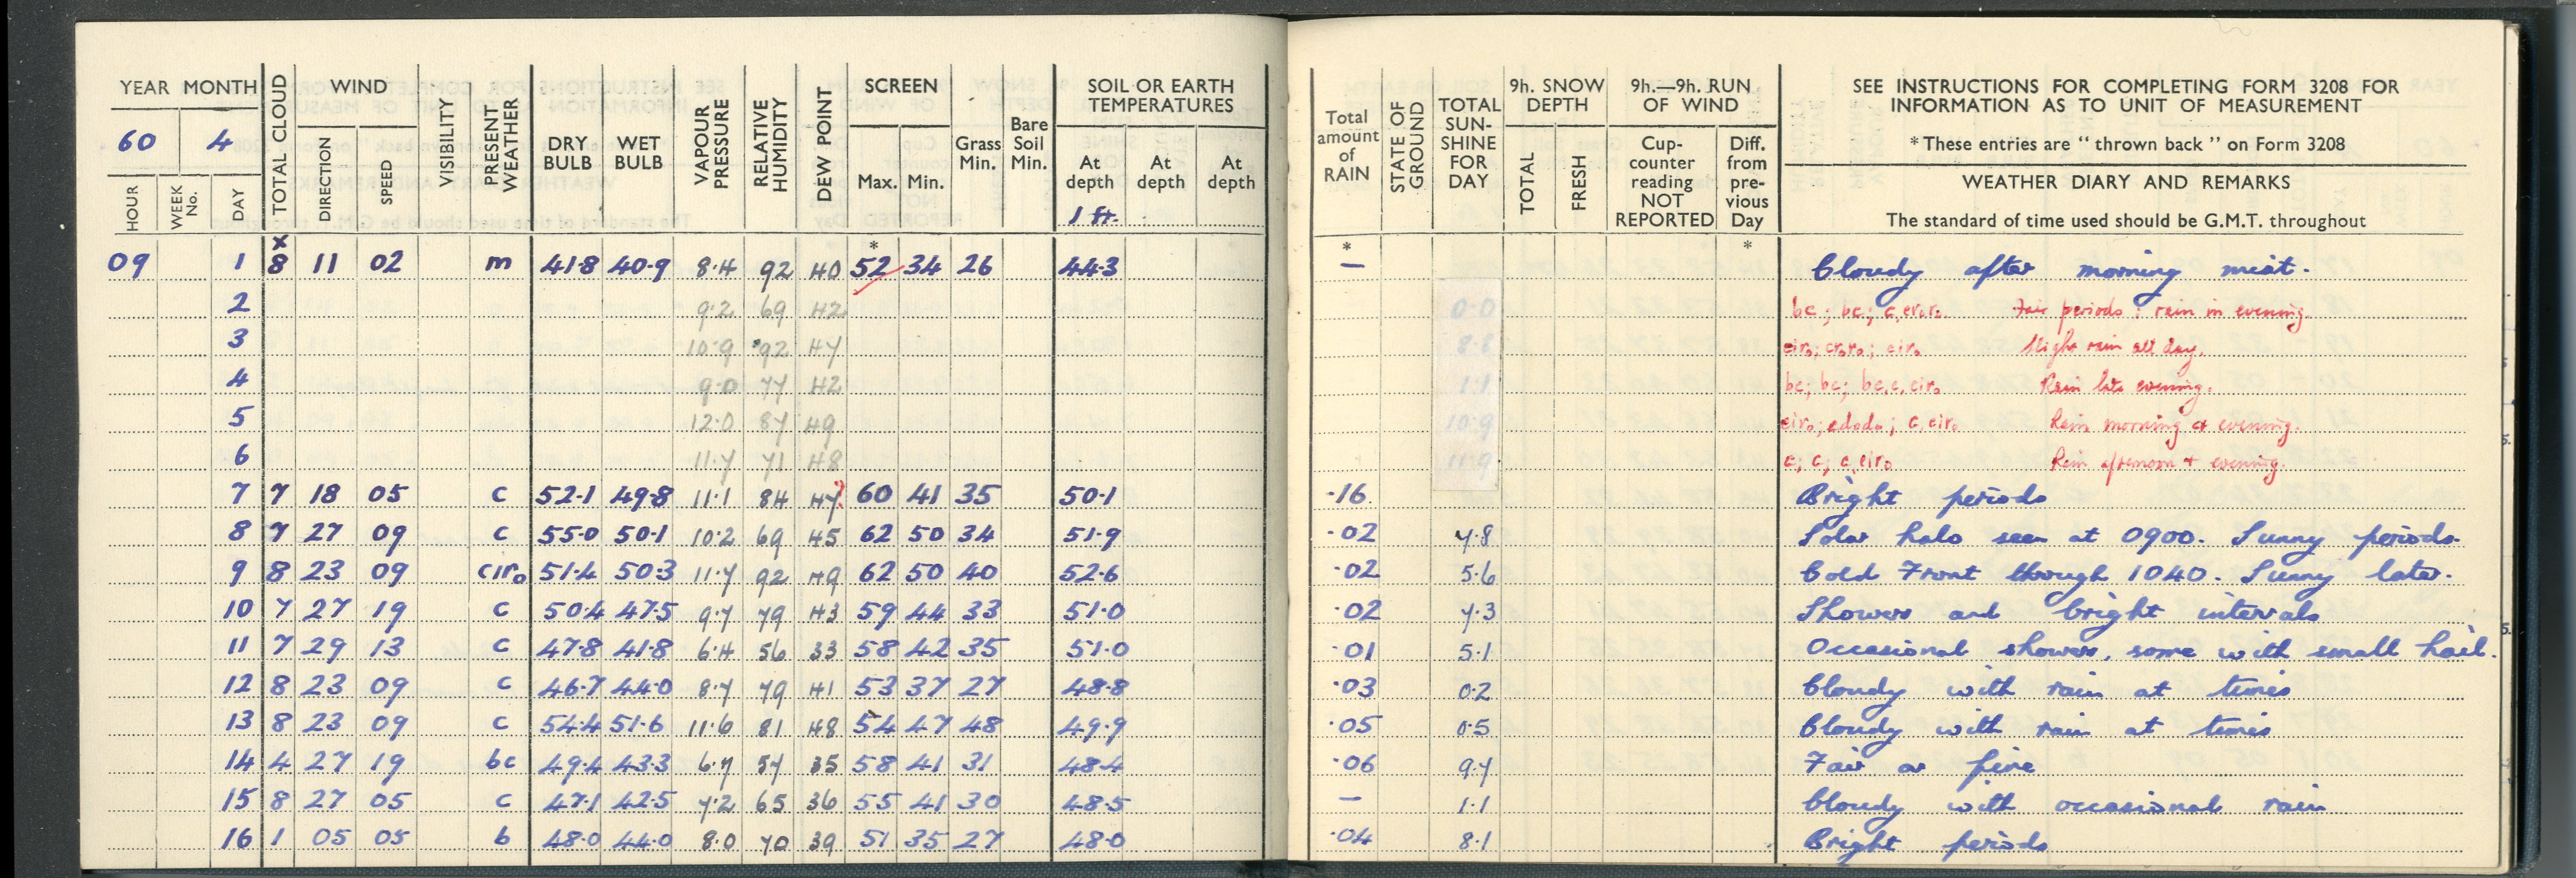 YEAR MONTH TOTAL CLOUD WIND VISIBILITY PRESENT WEATHER DRY BULB WET BULB VAPOUR PRESSURE RELATIVE HUMIDITY DEW POINT SCREEN Grass Min. Bare Soil Min. SOIL OR EARTH TEMPERATURES
60 4 DIRECTION SPEED Max. Min. At depth At depth At depth
HOUR WEEK No. DAY 1 ft.
Total amount of RAIN STATE OF GROUND TOTAL SUN- SHINE FOR DAY 9h. SNOW DEPTH TOTAL FRESH 9h.—9h. RUN OF WIND Cup- counter reading NOT REPORTED Diff. from pre- vious Day
SEE INSTRUCTIONS FOR COMPLETING FORM 3208 FOR
INFORMATION AS TO UNIT OF MEASUREMENT
* These entries are "thrown back" on Form 3208
WEATHER DIARY AND REMARKS
The standard of time used should be G.M.T. throughout
x * * *
09 1 8 11 02 m 41.8 40.9 8.4 92 40 52 34 26 44.3 — Cloudy after morning mist.
2 9.2 69 42 0.0 bc; bc; Fair periods: rain in evening.
3 10.9 92 47 8.8 Slight rain all day.
4 9.0 77 42 1.1 bc; bc; Rain late evening.
5 12.0 87 49 10.9 Rain morning & evening.
6 11.7 71 48 11.9 c; c; Rain afternoon + evening.
7 7 18 05 c 52.1 49.8 11.1 84 47? 60 41 35 50.1 .16 Bright periods
8 7 27 09 c 55.0 50.1 10.2 69 45 62 50 34 51.9 .02 7.8 Solar halo seen at 0900. Sunny periods.
9 8 23 09 cir₀ 51.4 50.3 11.7 92 49 62 50 40 52.6 .02 5.6 Cold Front through 1040. Sunny later.
10 7 27 19 c 50.4 47.5 9.7 79 43 59 44 33 51.0 .02 7.3 Showers and bright intervals
11 7 29 13 c 47.8 41.8 6.4 56 33 58 42 35 51.0 .01 5.1 Occasional showers, some with small hail.
12 8 23 09 c 46.7 44.0 8.7 79 41 53 37 27 48.8 .03 0.2 Cloudy with rain at times
13 8 23 09 c 54.4 51.6 11.6 81 48 54 47 48 49.9 .05 0.5 Cloudy with rain at times
14 4 27 19 bc 49.4 43.3 6.7 57 35 58 41 31 48.4 .06 9.7 Fair or fine
15 8 27 05 c 47.1 42.5 7.2 65 36 55 41 30 48.5 — 1.1 Cloudy with occasional rain
16 1 05 05 b 48.0 44.0 8.0 70 39 51 35 27 48.0 .04 8.1 Bright periods